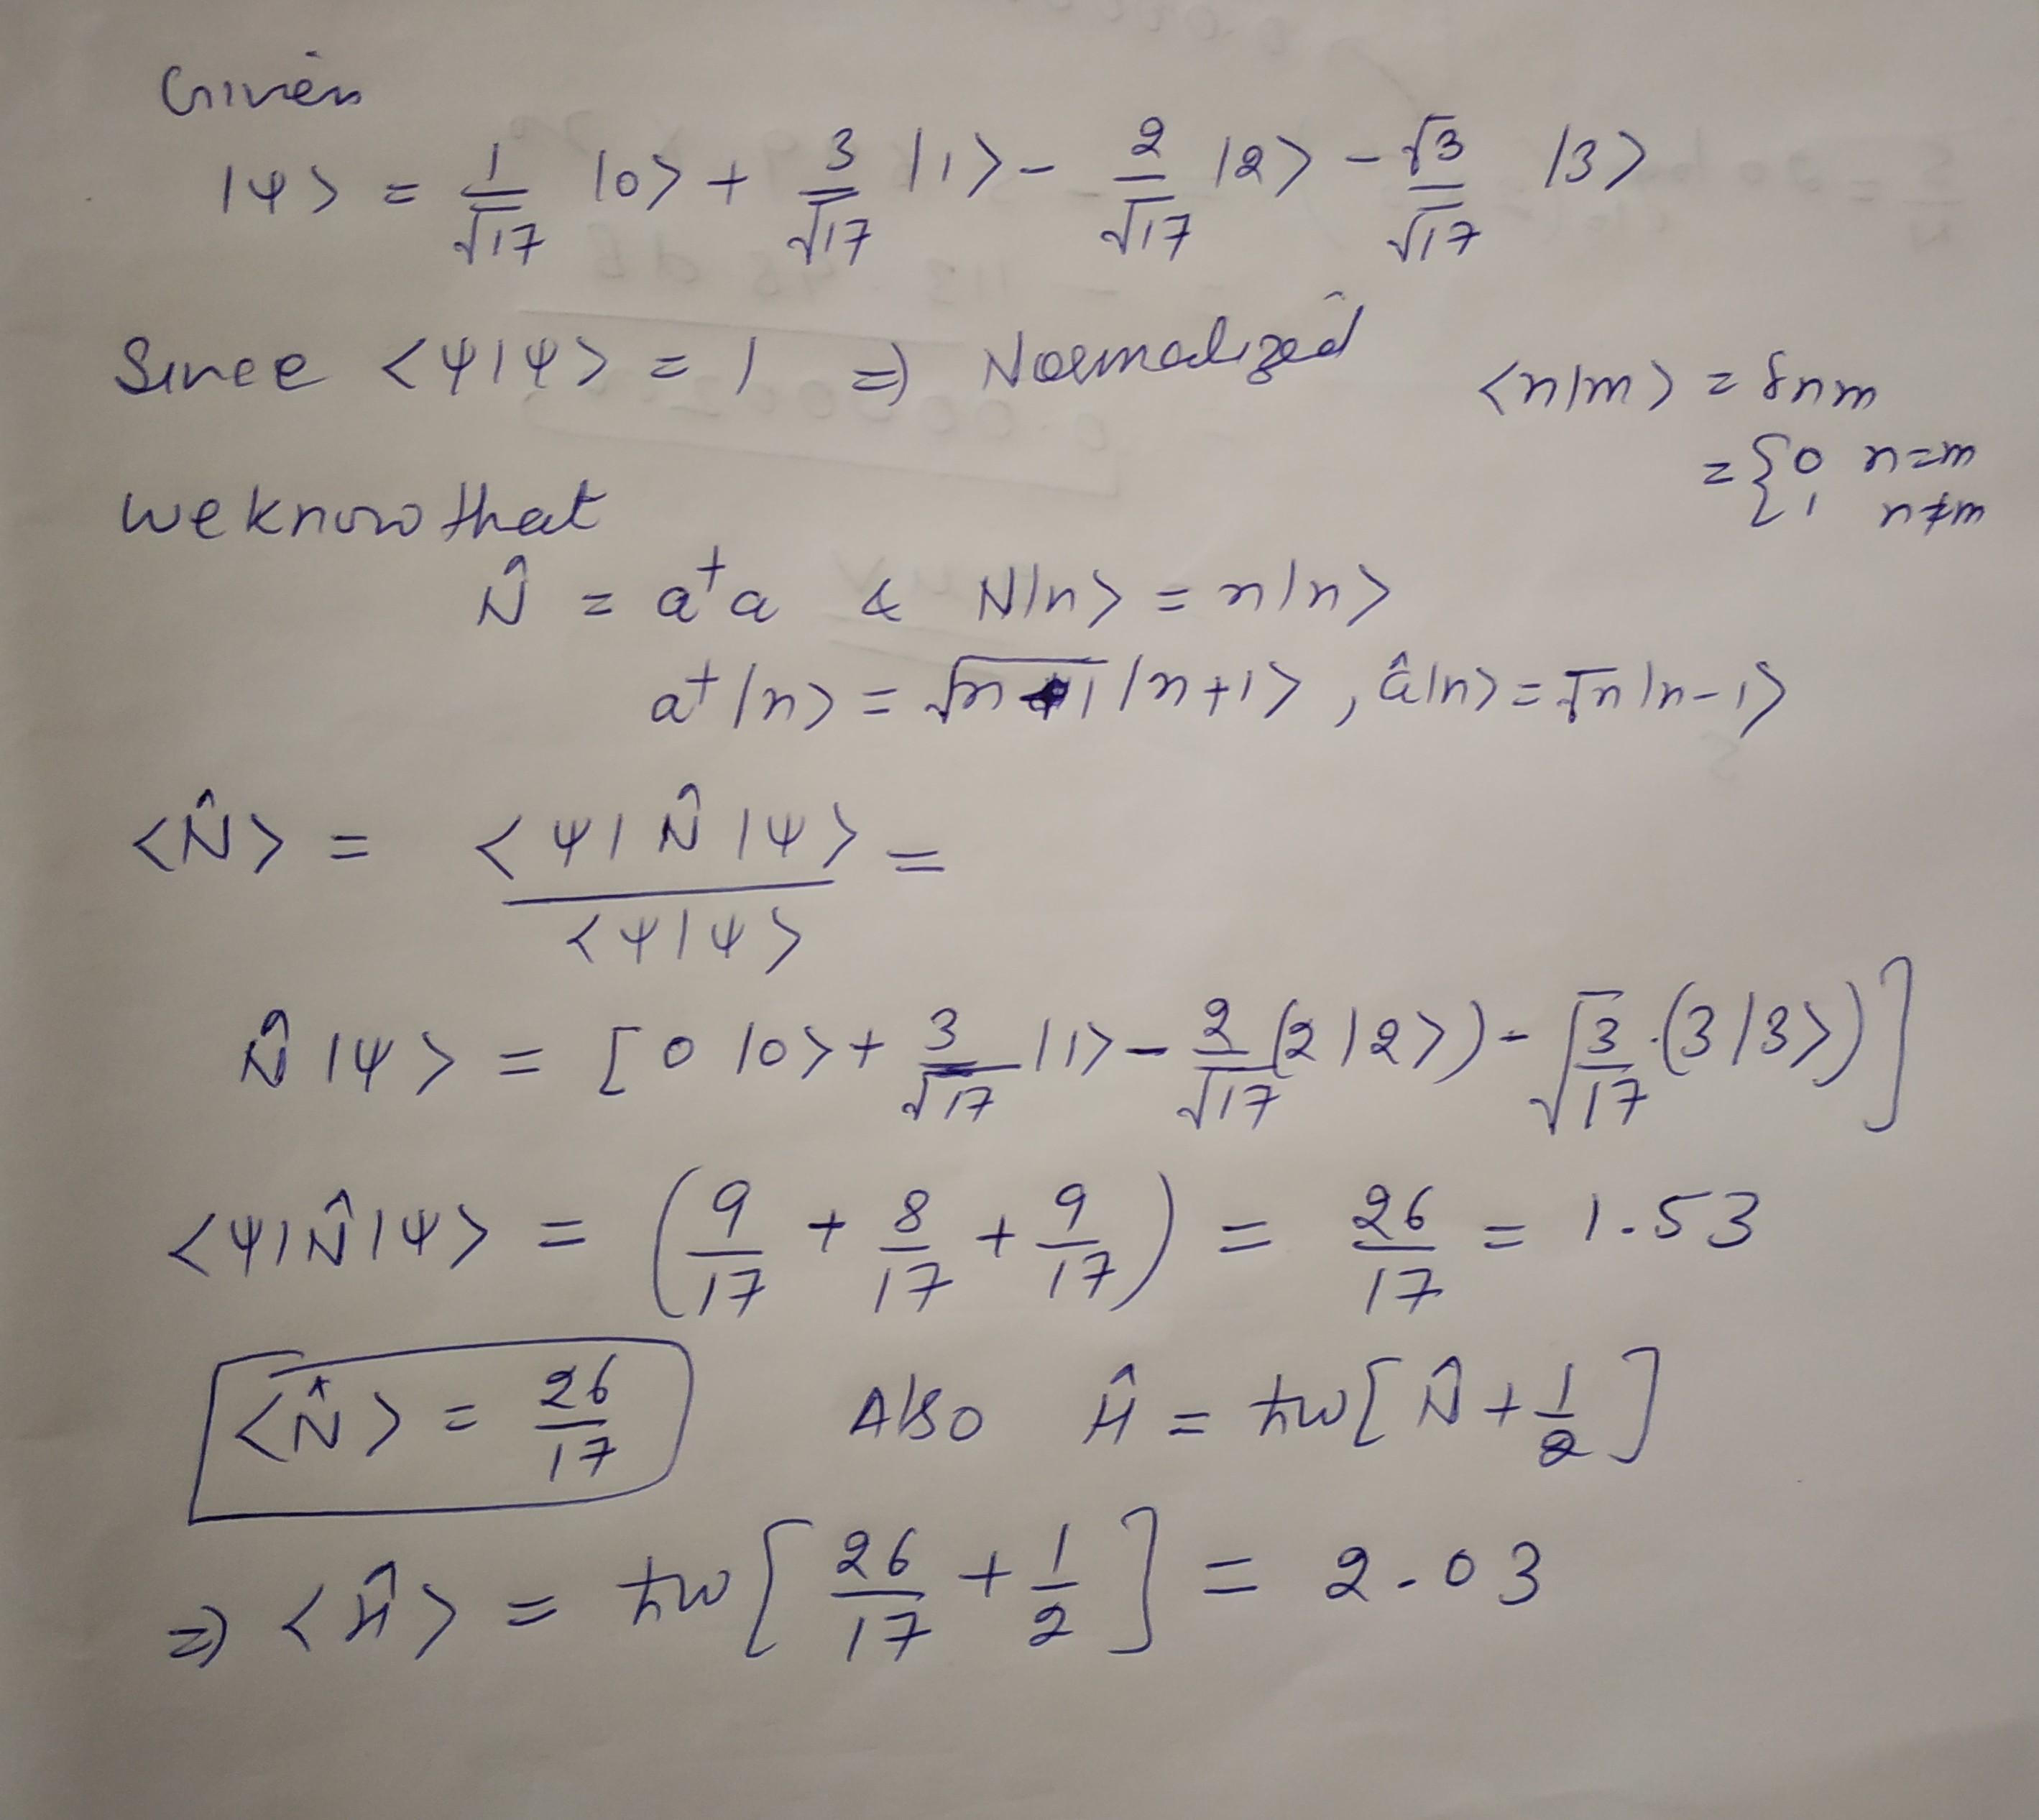 Given
|ψ> = 1/√17 |0> + 3/√17 |1> - 2/√17 |2> - √3/√17 |3>
Since <ψ|ψ> = 1 ⇒ Normalized
<n|m> = δnm
= { 0 n=m
1 n≠m
we know that
N̂ = a†a & N|n> = n|n>
a†|n> = √n+1 |n+1> , â|n> = √n |n-1>
<N̂> = <ψ|N̂|ψ> / <ψ|ψ> =
N̂|ψ> = [0|0> + 3/√17 |1> - 2/√17 (2|2>) - √3/17 · (3|3>)]
<ψ|N̂|ψ> = (9/17 + 8/17 + 9/17) = 26/17 = 1.53
<N̂> = 26/17 Also Ĥ = ħω[N̂ + 1/2]
⇒ <Ĥ> = ħω[26/17 + 1/2] = 2.03